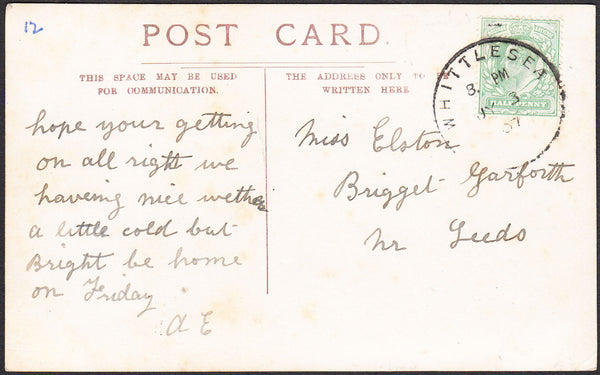 12
POST CARD.
THIS SPACE MAY BE USED
FOR COMMUNICATION.
THE ADDRESS ONLY TO
WRITTEN HERE
WHITTLESEA
8. PM
3
07
HALFPENNY
hope your getting
on all right we
haveing nice wether
a little cold but
Bright be home
on Friday
A E
Miss Elston
Brigget Garforth
Nr Leeds